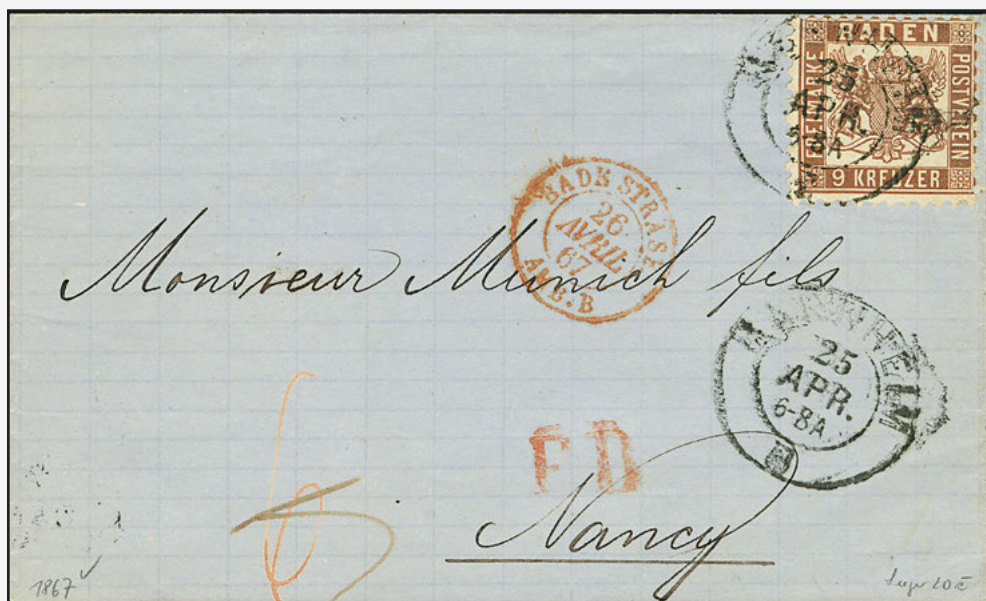 BADEN
FREIMARKE
POSTVEREIN
9 KREUZER
25
APR.
BADE STRASB.
26
AVRIL
67
AMB. B
Monsieur Munich fils
MANNHEIM
25
APR.
6-8A
P.D
Nancy
6
1867